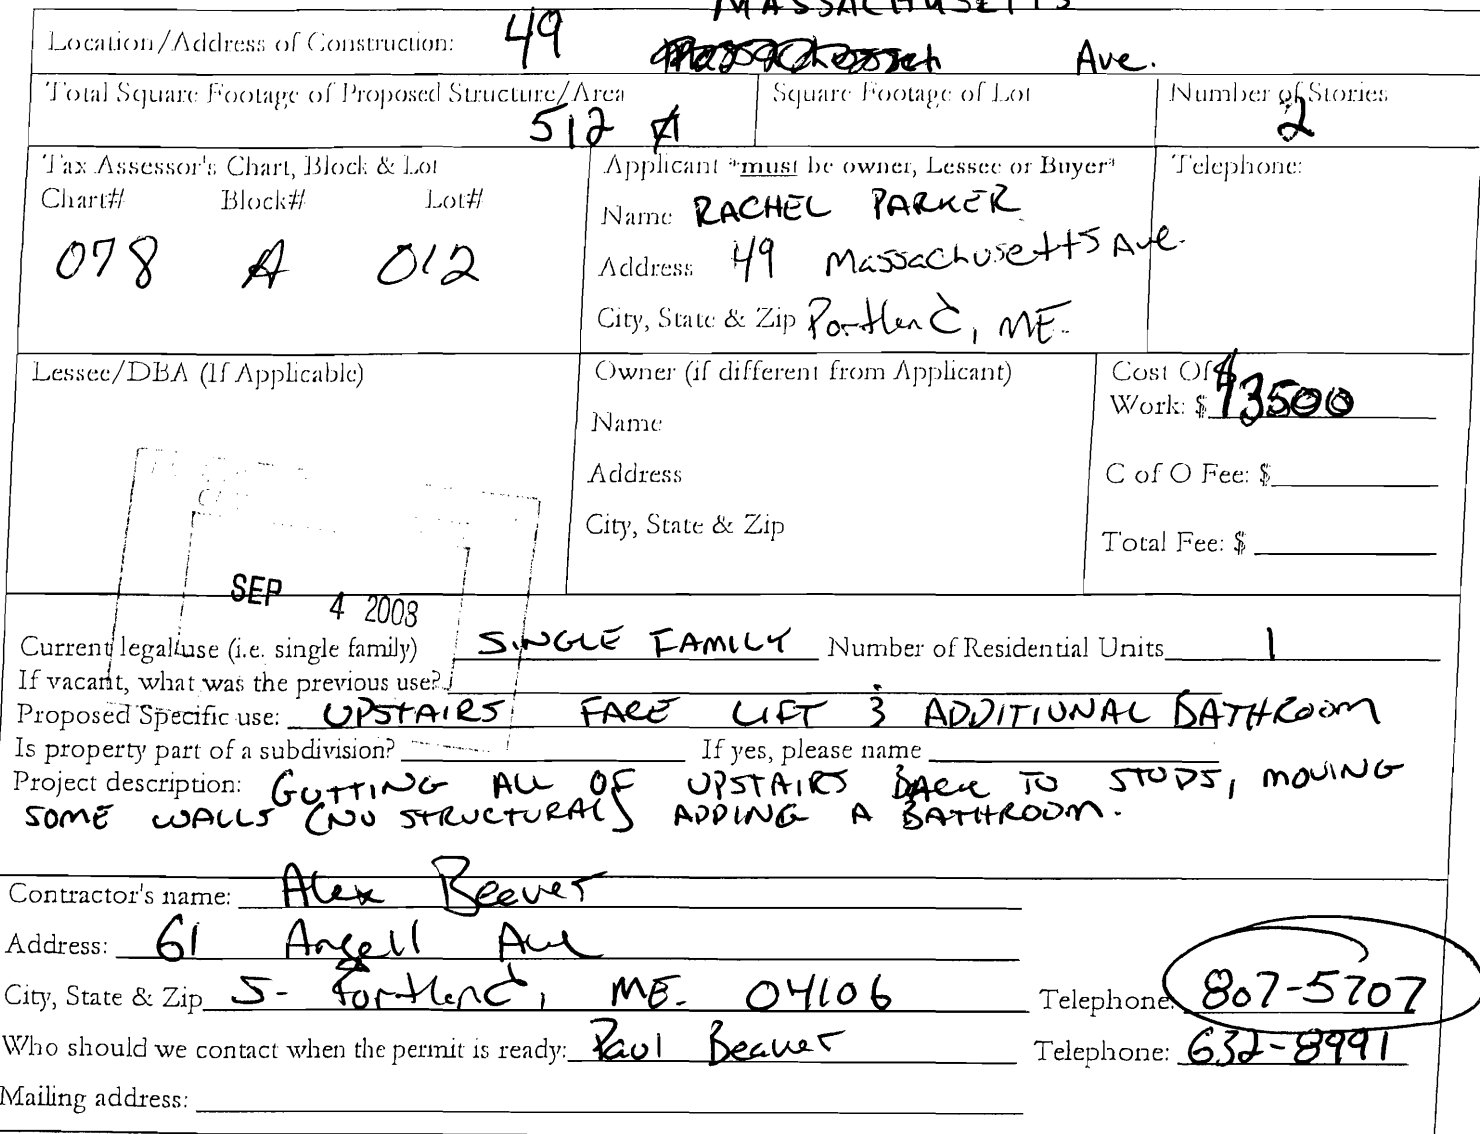 MASSACHUSETTS
Location/Address of Construction: 49 Ave.
Total Square Footage of Proposed Structure/Area Square Footage of Lot Number of Stories
512 2
Tax Assessor's Chart, Block & Lot Applicant *must be owner, Lessee or Buyer* Telephone:
Chart# Block# Lot# Name RACHEL PARKER
078 A 012 Address 49 Massachusetts Ave.
City, State & Zip Portland, ME.
Lessee/DBA (If Applicable) Owner (if different from Applicant) Cost Of
Name Work: $ $13500
Address C of O Fee: $
City, State & Zip Total Fee: $
SEP 4 2008
Current legal use (i.e. single family) SINGLE FAMILY Number of Residential Units 1
If vacant, what was the previous use?
Proposed Specific use: UPSTAIRS FACE LIFT & ADDITIONAL BATHROOM
Is property part of a subdivision? If yes, please name
Project description: GUTTING ALL OF UPSTAIRS BACK TO STUDS, MOVING
SOME WALLS (NO STRUCTURAL) ADDING A BATHROOM.
Contractor's name: Alex Beaver
Address: 61 Angell Ave
City, State & Zip S- Portland, ME. 04106 Telephone: 807-5707
Who should we contact when the permit is ready: Paul Beaver Telephone: 632-8991
Mailing address: